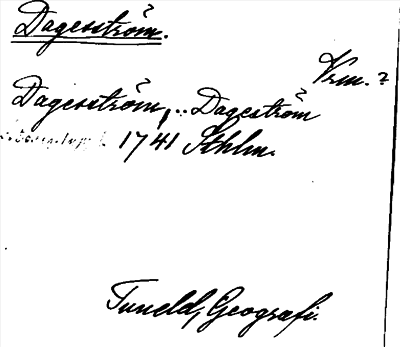 Dagerström.
Vrm. ?
Dagerström, .. Dageström
1741 Sthlm.
Tuneld, Geografi.